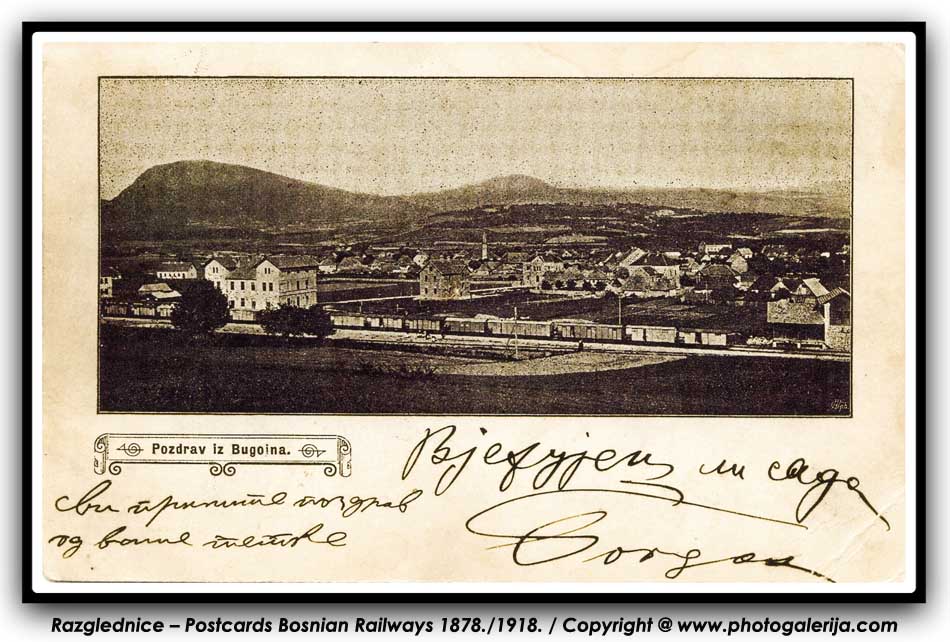 Pozdrav iz Bugojna.
Вјерујеш ли сада
Сви примите поздрав
од ваше тетке
Razglednice – Postcards Bosnian Railways 1878./1918. / Copyright @ www.photogalerija.com